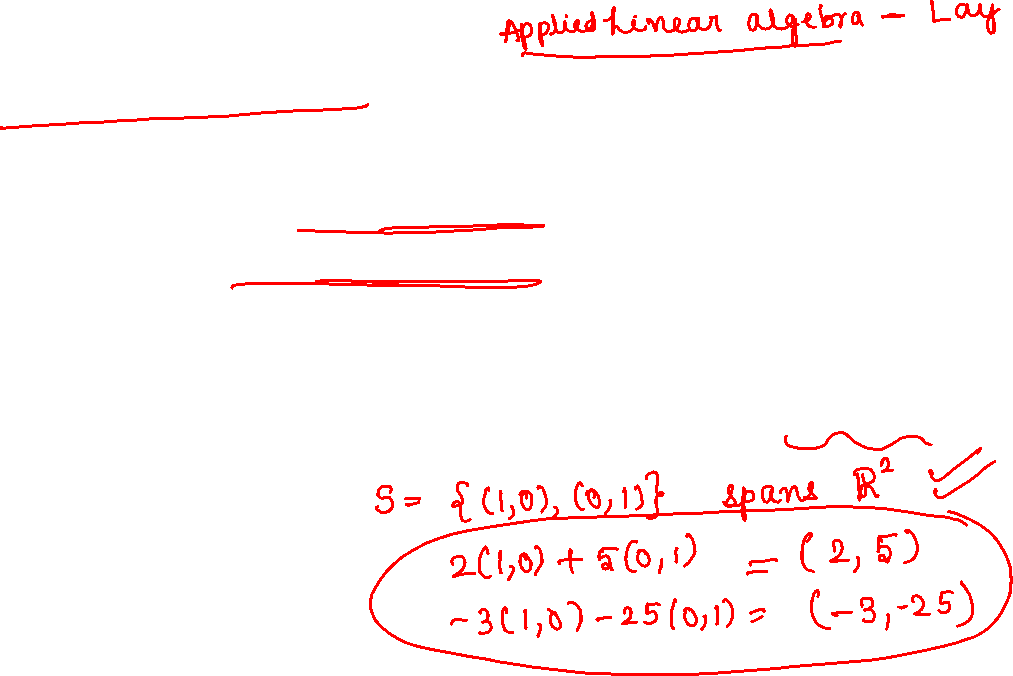 Applied Linear algebra - Lay
S = {(1,0), (0,1)} spans ℝ²
2(1,0) + 5(0,1) = (2, 5)
-3(1,0) - 25(0,1) = (-3, -25)